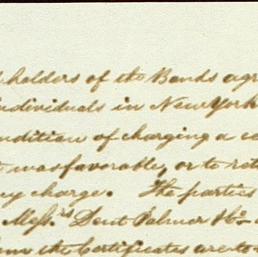 holders of the Bonds agr
individuals in New York
ndition of charging a co
was favorable, or to ret
ey charge. The parties
Messrs Dent Palmer &Co
the Certificates are to